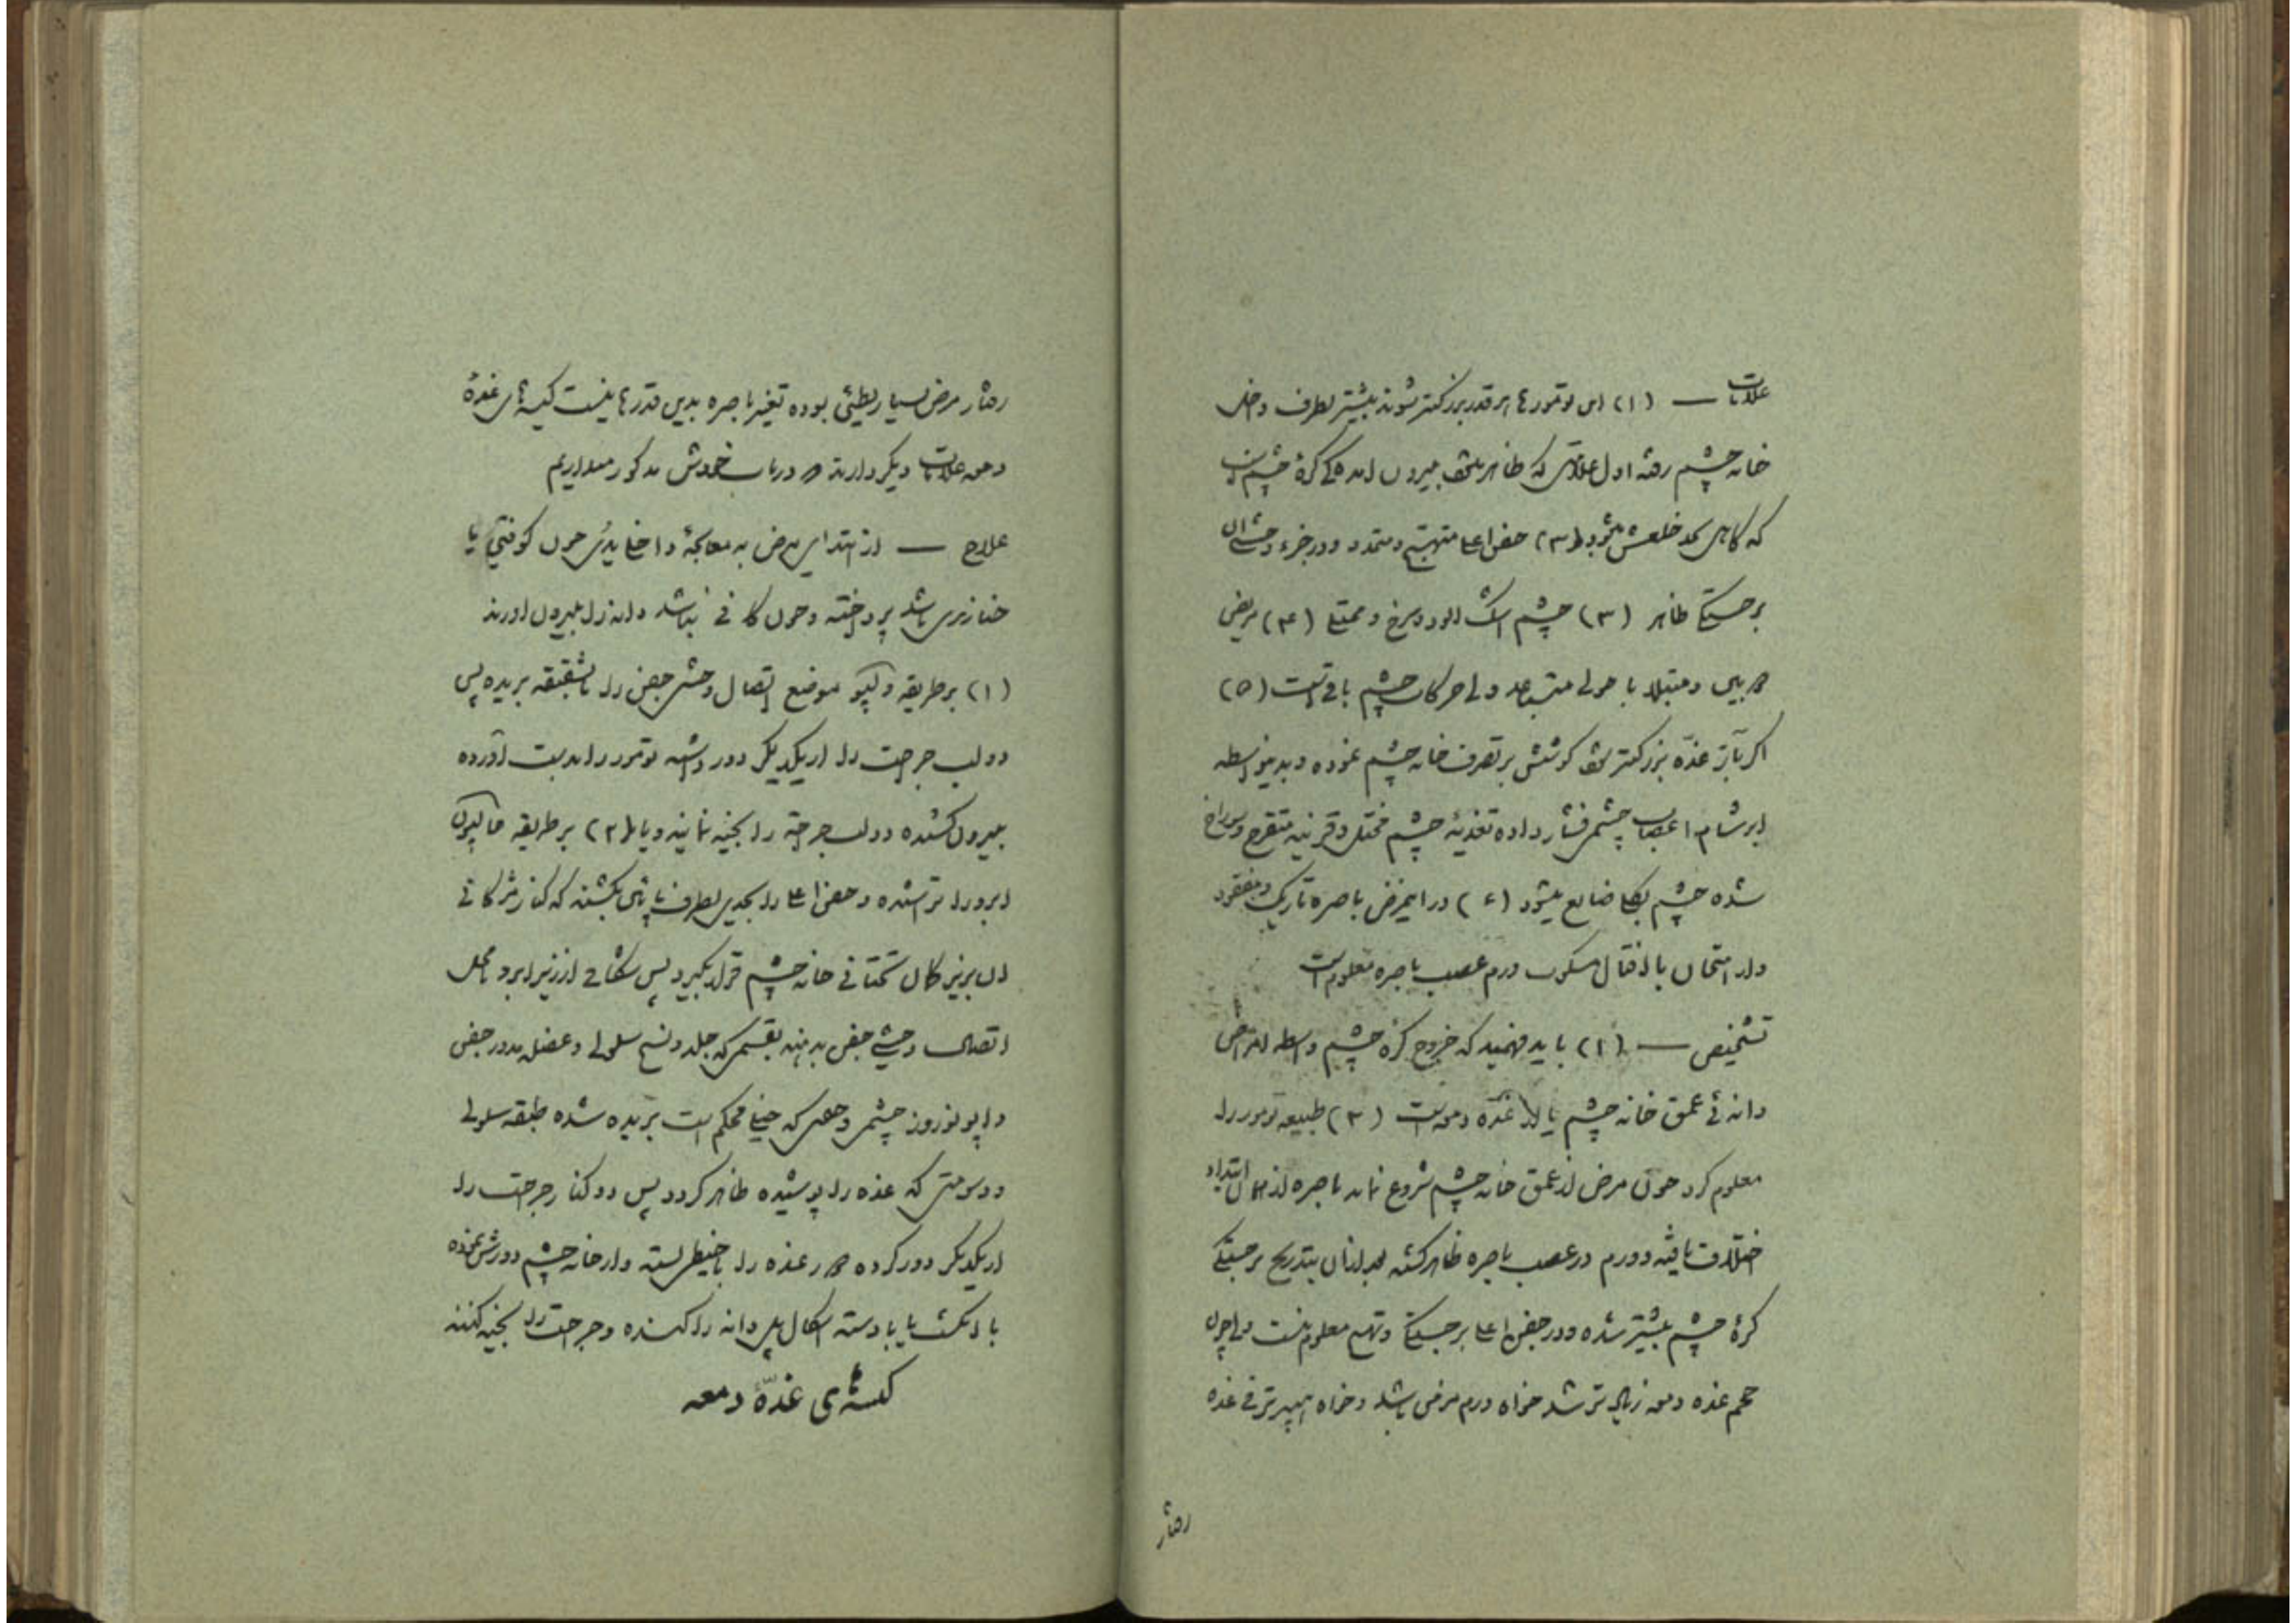 علامات — (۱) این تومورها هر قدر بزرکتر شوند بیشتر بطرف داخل
خانه چشم رفته اول علامتی که ظاهر میشود بیرون آمدکی کرهٔ چشم است
که کاهی بحد خلعش میشود (۲) جفن اعلا متهبج و متمدد و در جزء وحشی آن
برجستکی ظاهر (۳) چشم اشک آلود و سرخ و ممتلی (۴) مریض
دوبین و مبتلا با حولی متباعد ولی حرکات چشم باقی است (۵)
اکر باز غدّه بزرکتر شود کوشش بر تصرف خانه چشم نموده و بدینواسطه
بر تمام اعصاب چشمی فشار داده تغذیهٔ چشم مختل و قرنیه متقرح و سوراخ
شده چشم بکلی ضایع میشود (۶) در این مرض باصره تاریک و مفقود
و از امتحان با افتالمسکوپ ورم عصب باصره معلوم است
تشخیص — (۱) باید فهمید که خروج کرهٔ چشم واسطه امراض
دانهٔ عمق خانه چشم یا از غدّه دمعه است (۲) طبیعه تومور را
معلوم کرد چون مرض از عمق خانه چشم شروع نماید باصره از همان ابتداء
اختلاف یافته و ورم در عصب باصره ظاهر کشته بعد از آن بتدریج برجستکی
کرهٔ چشم بیشتر شده و در جفن اعلا برجستکی و تهبج معلوم نیست ولی چون
حجم غده دمعه زیادتر شد خواه ورم مزمن باشد و خواه هیپرترفی غده
رفتار
رفتار مرض بسیار بطیئی بوده تغیر باصره بدین قدرها نیست کیسه‌های غدهٔ
دمعه علامات دیکر دارند که در باب خودش مذکور میداریم
علاج — از ابتدا این مرض به معالجهٔ داخلی بدنی چون کوفتی یا
خنازیری باشد پرداخته و چون کافی نباشد دانه را بیرون آورند
(۱) بر طریقه ولپو موضع اتصال وحشی جفن را تا شقیقه بریده پس
دو لب جراحت را از یکدیکر دور داشته تومور را بدست آورده
بیرون کشنده دو لب جراحت را بخیه نمایند و یا (۲) بر طریقه هالپرن
ابرو را تراشنده و جفن اعلا را بحدی بطرف پائین بکشند که کنار مژکانی
آن بزیر کمان تحتانی خانه چشم قرار بکیرد پس شکافی از زیر ابرو تا محل
اتصال وحشی جفن بدهند بقسمی که جلد و نسج سلولی و عضله مدور جفن
و اپونوروز چشمی وحشی که خیلی محکم است بریده شده طبقه سلولی
و دسومتی که غده را پوشیده ظاهر کردد پس دو کنار جراحت را
از یکدیکر دور کرده دور غده را بخیطی بسته و از خانه چشم دورش نموده
با انکشت یا با دسته اسکالپل دانه را کنده و جراحت را بخیه کنند
کیسه‌های غدّهٔ دمعه